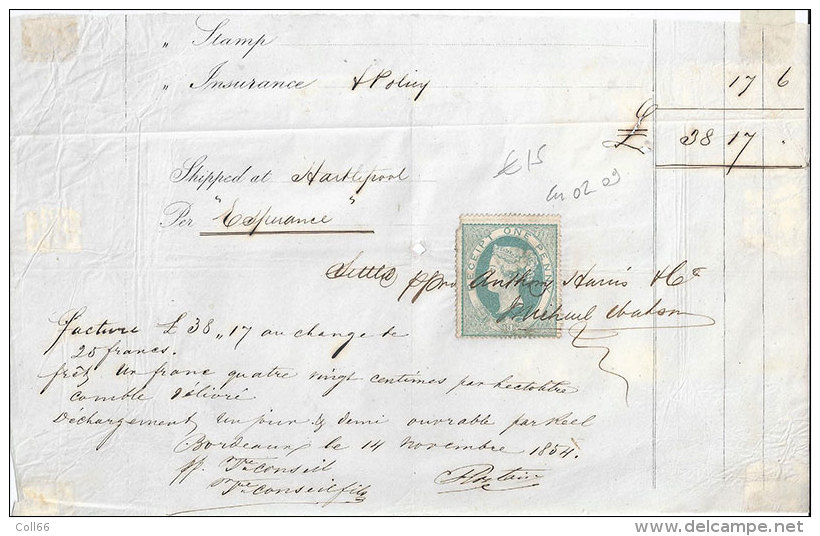 „ Stamp
„ Insurance & Policy 17 6
£ 38 17 .
£15
Shipped at Hartlepool
Per "Esperance"
RECEIPT ONE PENNY
Settled ppro Anthony Harris & Co
Michael Watson
facture £ 38 „ 17 au change de
25 francs.
frêt un franc quatre vingt centimes par hectolitre
comble délivré
Déchargement un jour & demi ouvrable par Keel
Bordeaux le 14 novembre 1854.
pp. Tre Conseil
Tre Conseil fils
Coll66
delcampe.net